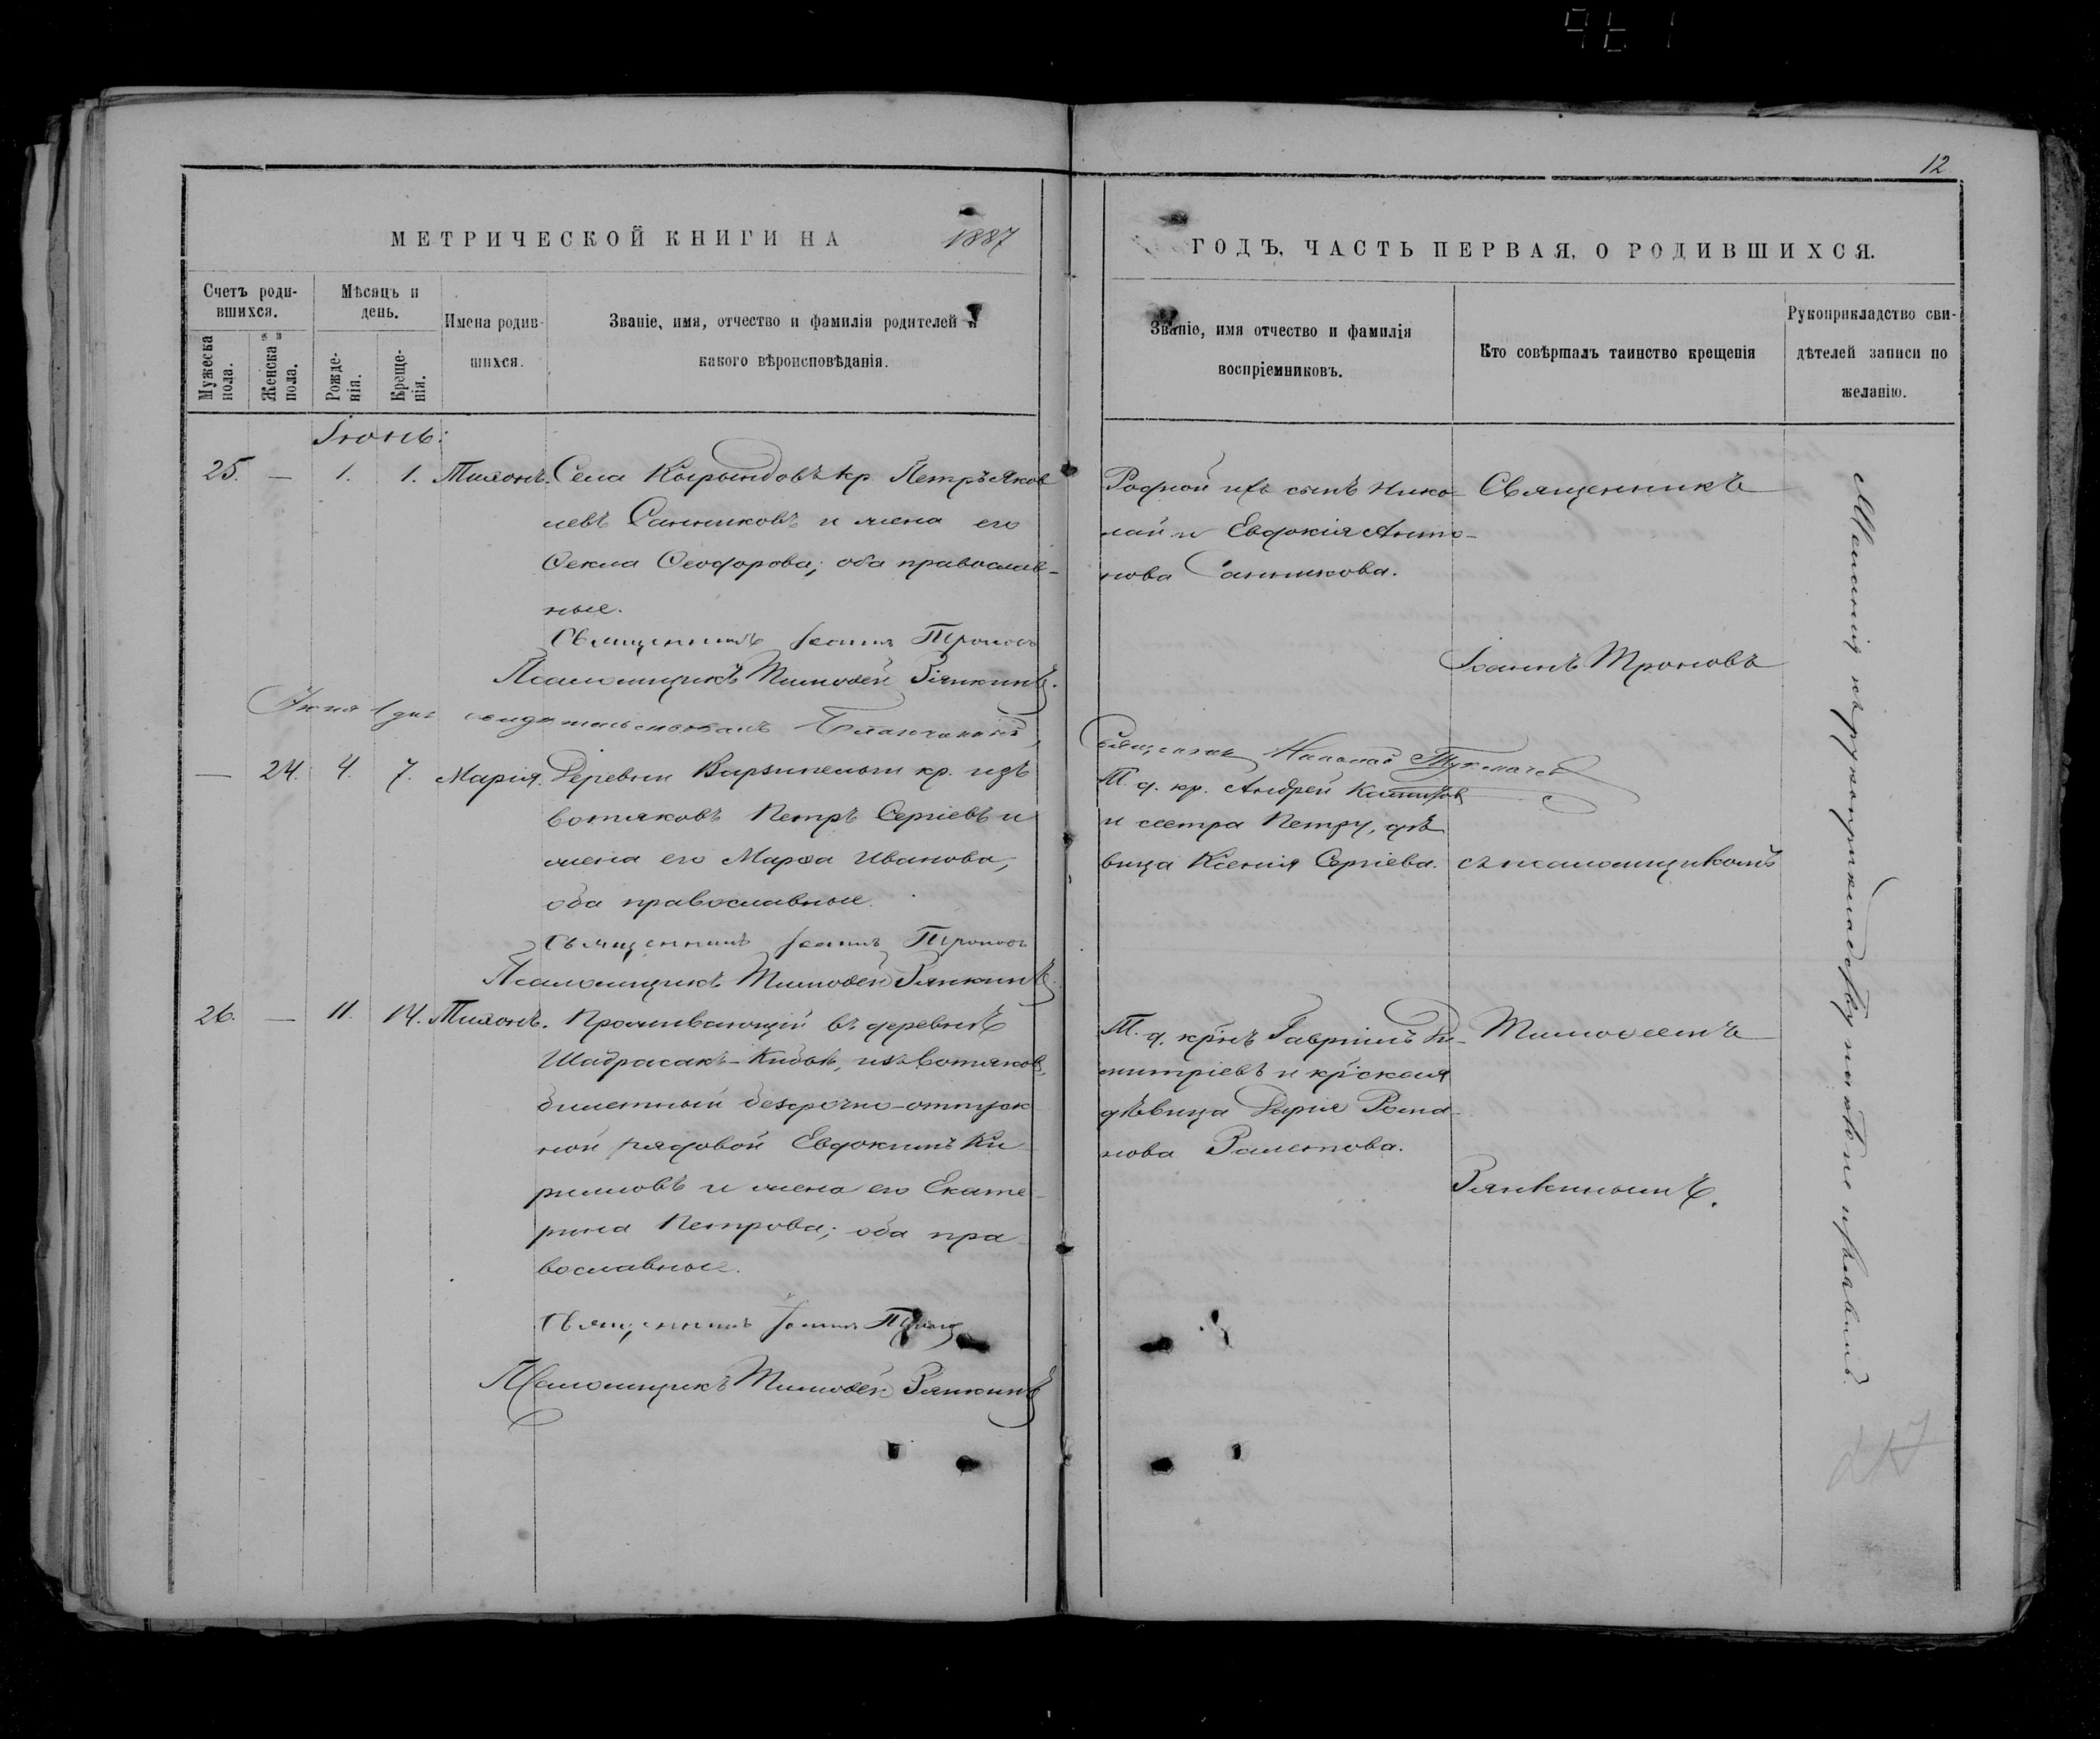 12
МЕТРИЧЕСКОЙ КНИГИ НА 1887
ГОДЪ, ЧАСТЬ ПЕРВАЯ, О РОДИВШИХСЯ.
Счетъ роди-
вшихся.
Мужеска
пола.
Женска
пола.
Мѣсяцъ и
день.
Рожде-
нія.
Креще-
нія.
Имена родив-
шихся.
Званіе, имя, отчество и фамилія родителей и
какого вѣроисповѣданія.
Званіе, имя отчество и фамилія
воспріемниковъ.
Кто совѣршалъ таинство крещенія
Рукоприкладство сви-
дѣтелей записи по
желанію.
Іюнь:
25. — 1. 1. Тихонъ. Села Кырындовъ кр. Петръ Яков
левъ Санниковъ и жена его
Ѳекла Ѳеодорова; оба православ-
ные.
Священникъ Іоаннъ Троновъ
Псаломщикъ Тимоѳей Рянкинъ.
Родной ихъ сынъ Нико-
лай и Евдокія Анто-
нова Санникова.
Священникъ
Іоаннъ Троновъ
Іюня 1 дня свидѣтельствовалъ Благочинный,
Священникъ Николай
— 24. 4. 7. Марія. Деревни Варзипельги кр. изъ
вотяковъ Петръ Сергіевъ и
жена его Марѳа Иванова,
оба православные.
Священникъ Іоаннъ Троновъ
Псаломщикъ Тимоѳей Рянкинъ.
Т. д. кр. Андрей
и сестра Петру, дѣ
вица Ксенія Сергіева.
съ псаломщикомъ
26. — 11. 14. Тихонъ. Проживающій въ деревнѣ
Шадрасакъ-Кибьѣ, изъ вотяковъ,
билетный безсрочно-отпуск
ной рядовой Евдокимъ Ки
рилловъ и жена его Екате-
рина Петрова; оба пра-
вославные.
Священникъ Іоаннъ Троновъ
Псаломщикъ Тимоѳей Рянкинъ
Т. д. кр͠нъ Гавріилъ Ди-
митріевъ и кр͠ская
дѣвица Дарія Рома-
нова Раметова.
Тимоѳеемъ
Рянкинымъ.
къ рукоприкладству никто не изъявилъ.
217